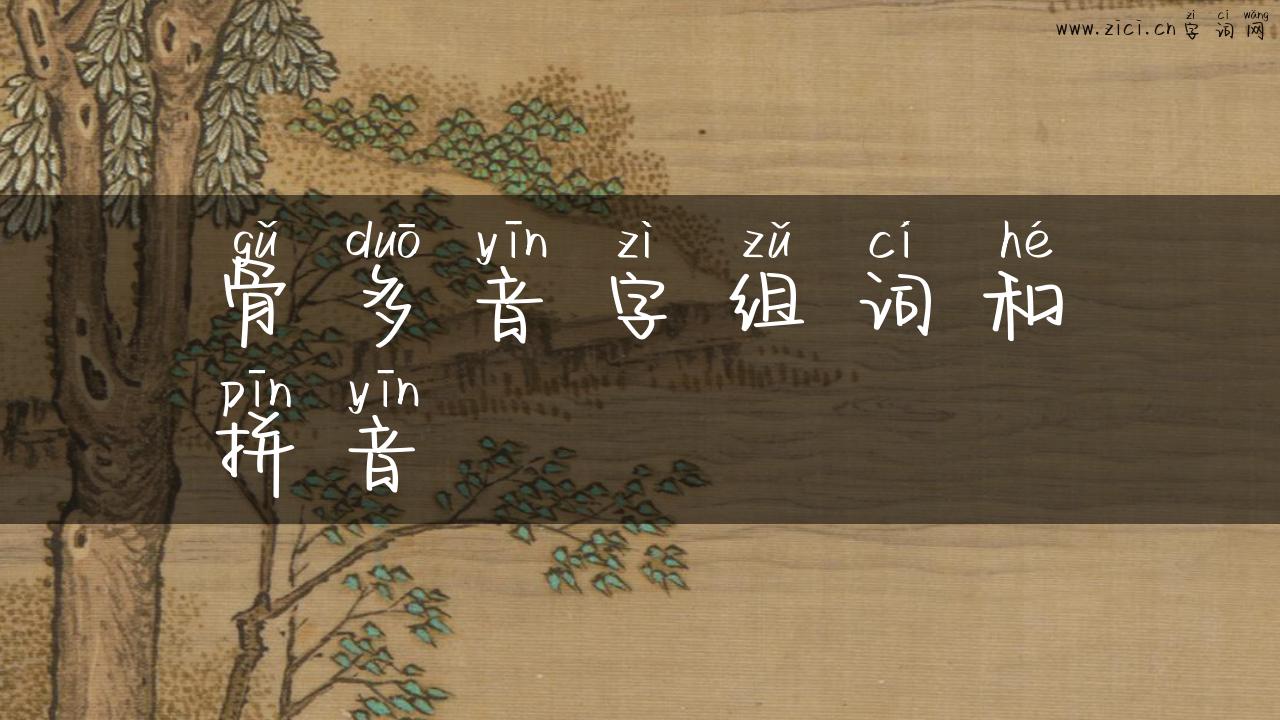 zì cí wǎng
www.zici.cn 字词网
gǔ duō yīn zì zǔ cí hé
骨多音字组词和
pīn yīn
拼音